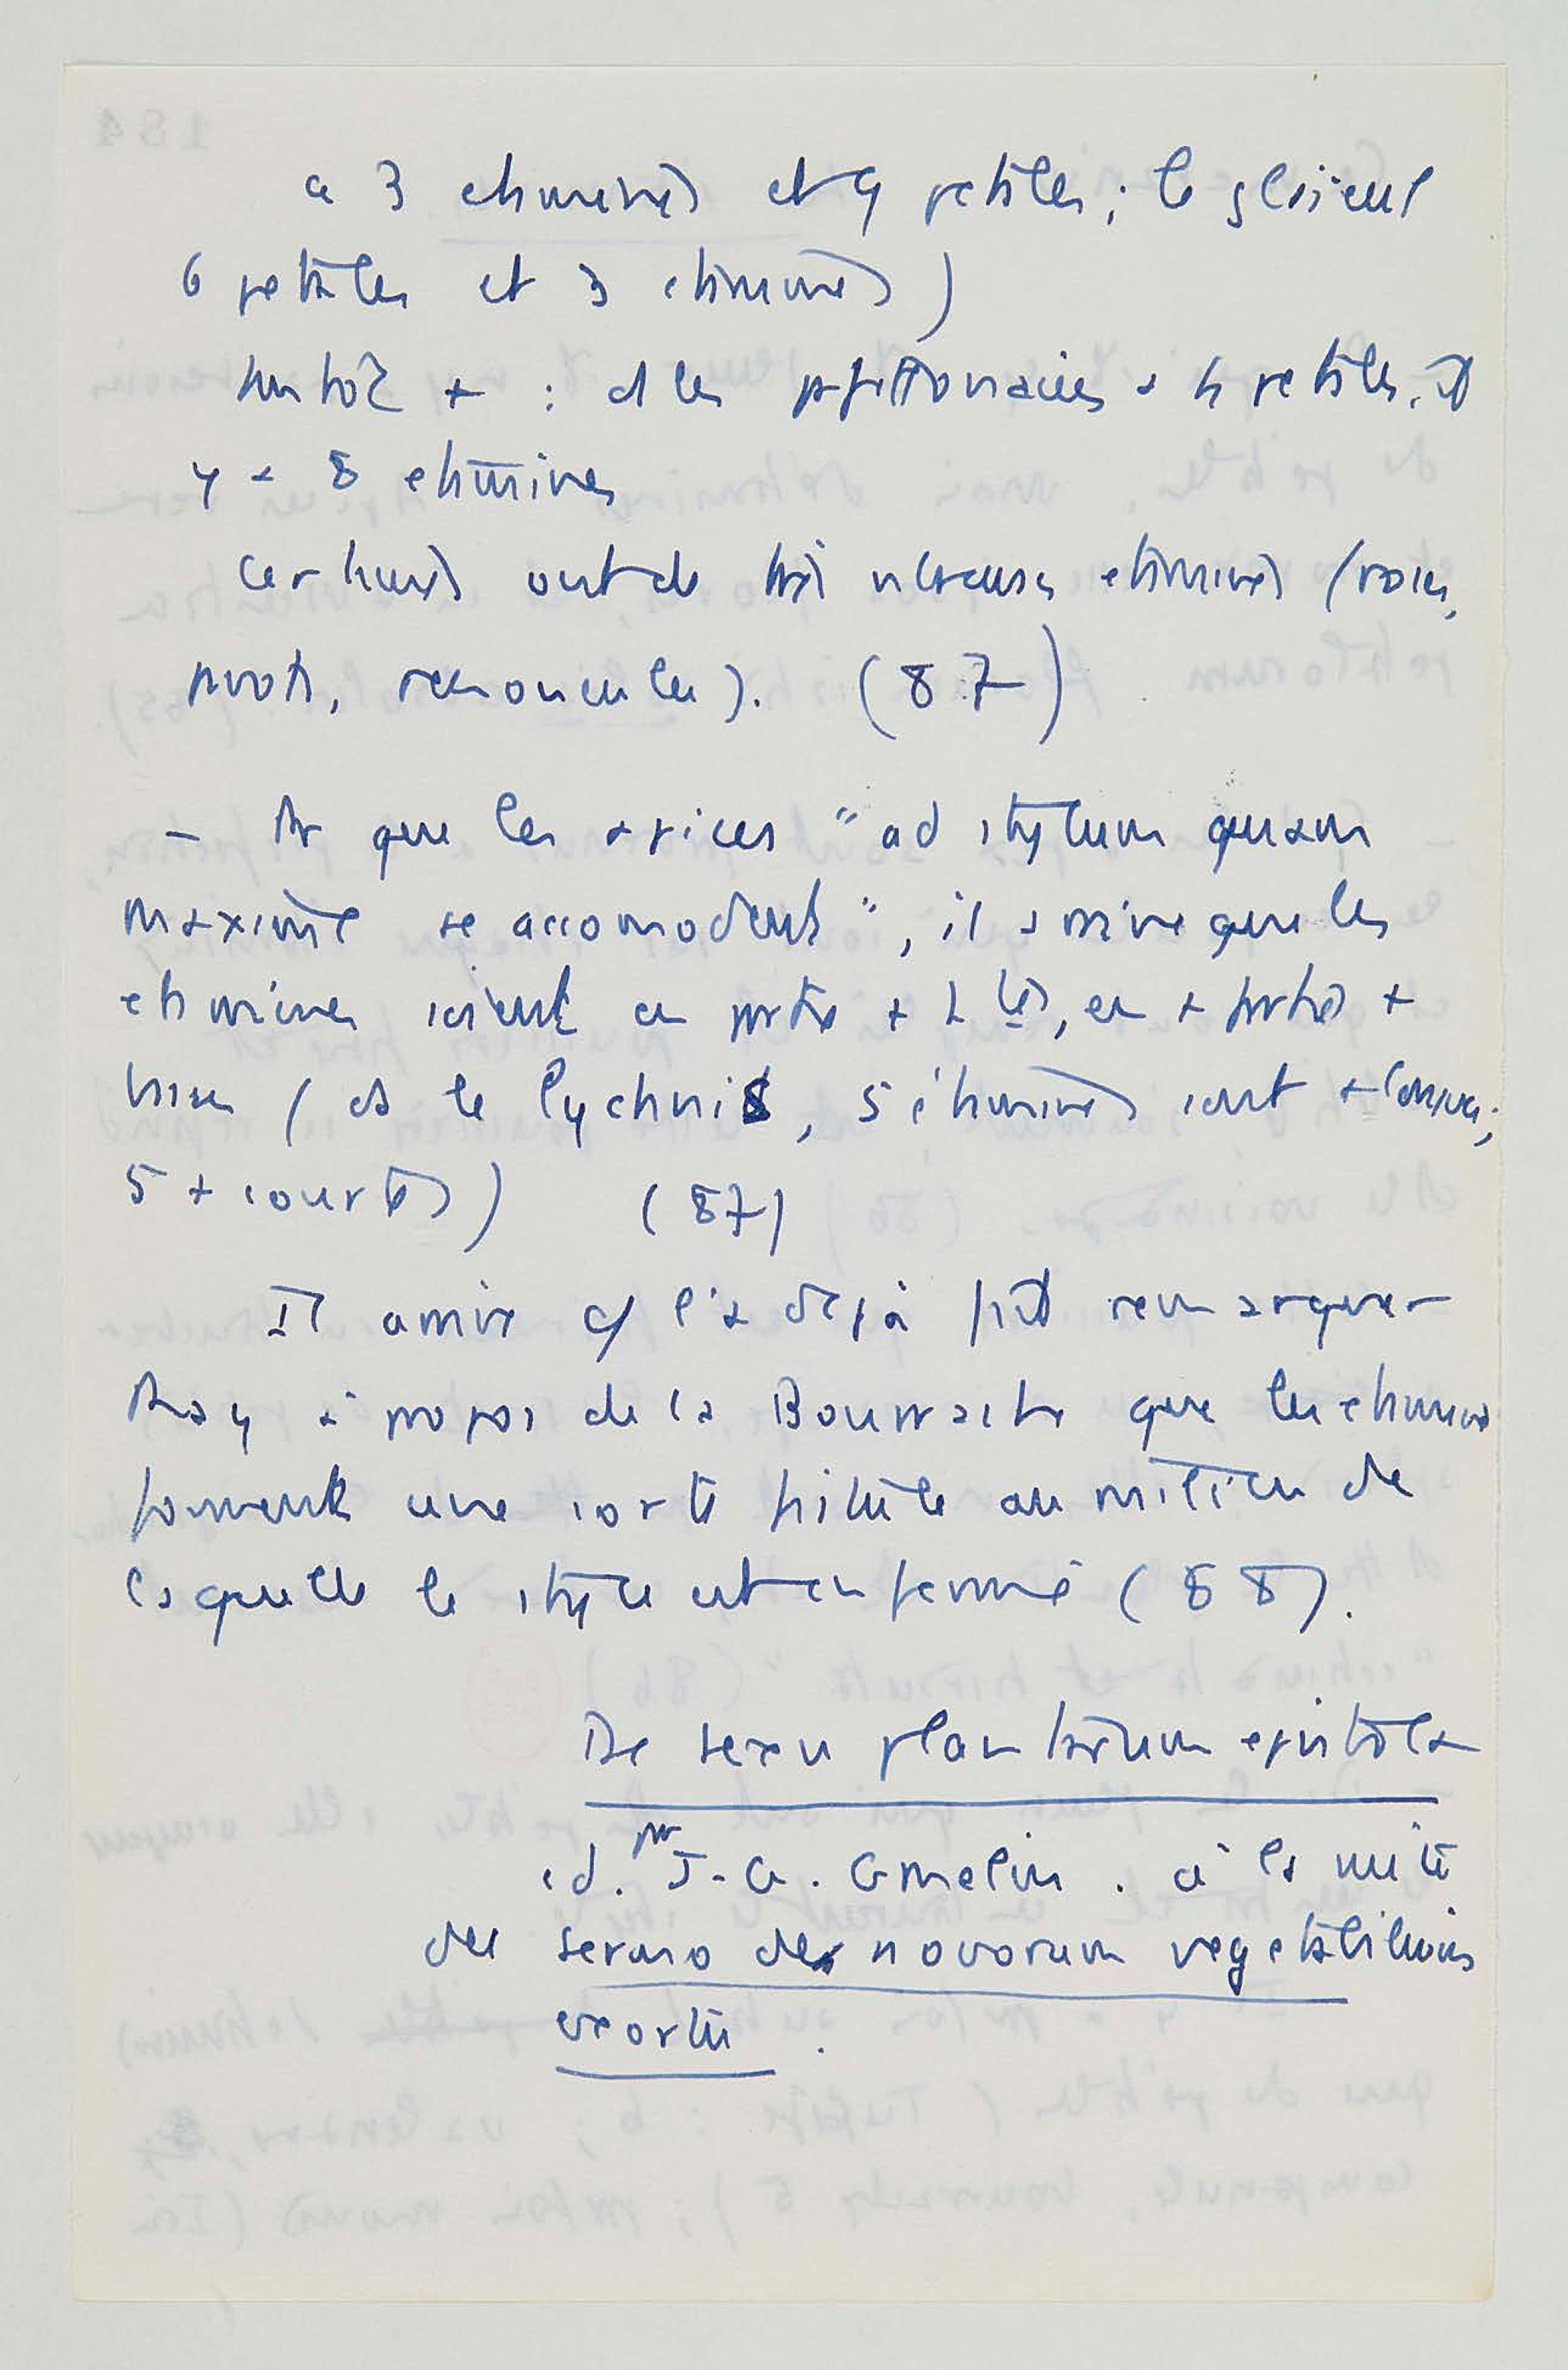 a 3 etamines et 9 petales ; le glaieul
6 petales et 3 etamines )
tantôt + : ds les papillonacées a 4 petales, il
y a 8 etamines
certaines ont de très nbreuses etamines (roses,
pavots, renoncules). (87)
- Pr que les apices "ad stylum quam
maxime se accomodent", il arrive que les
etamines soient en partie + htes, en + partie +
basses (ds le lychnis, 5 étamines sont + longues ;
5 + courtes) (87)
Il arrive c/ l'a déjà fait remarquer
Ray à propos de la Bourrache que les etamines
forment une sorte fistule au milieu de
laquelle le style est enfermé (88).
De sexu plantarum epistola
ed. par J-G. Gmelin . à la suite
du sermo de novorum vegetabilium
exortu .